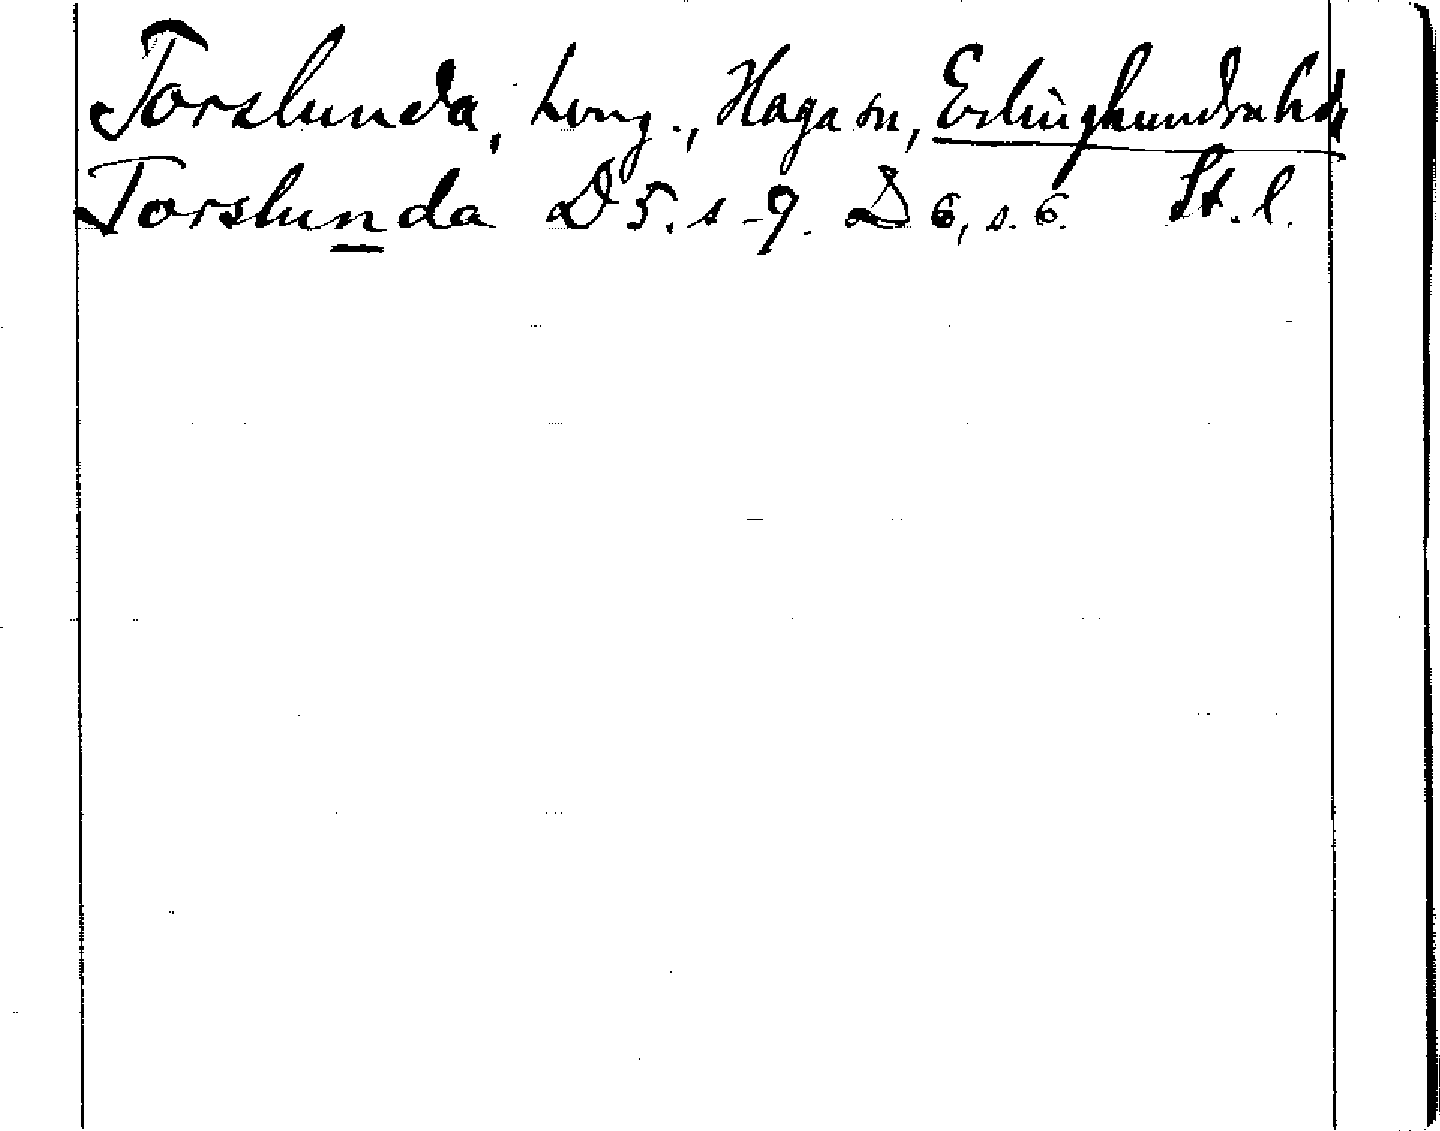 Torslunda, herrg., Haga sn, Erlinghundra hd,
Torslunda D 5. s -9. D 6, s. 6. St. l.